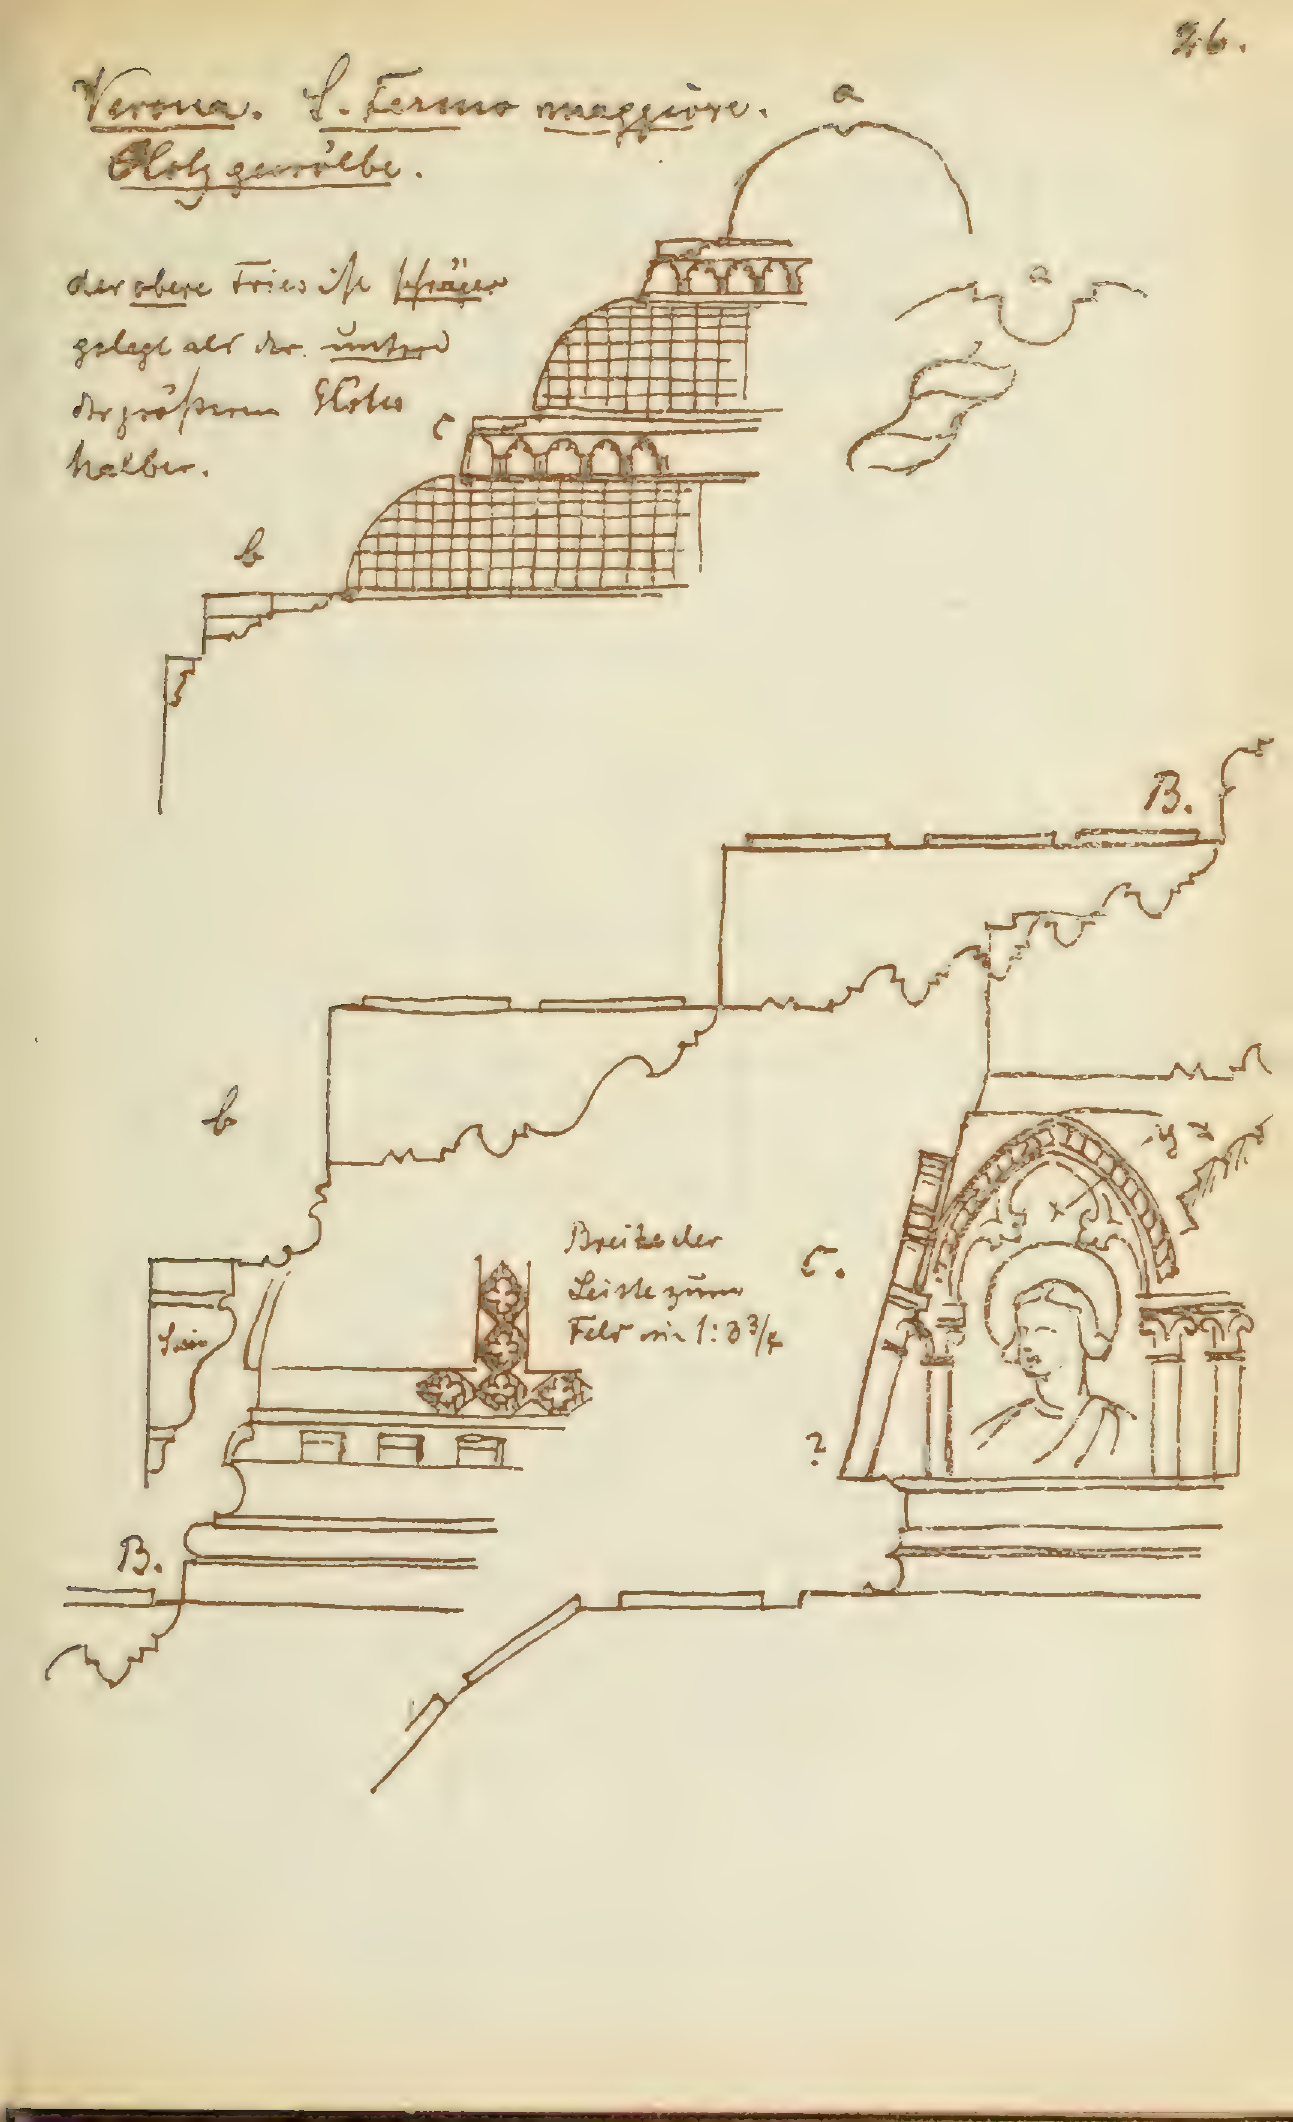 26.
Verona. S. Fermo maggiore.
Holzgewölbe.
a
der obere Fries ist schräger
gelegt als der untere
der größeren Höhe
halber.
a
c
b
B.
b
Breite der
Leiste zum
Feld wie 1:3 3/4
C.
x
?
B.